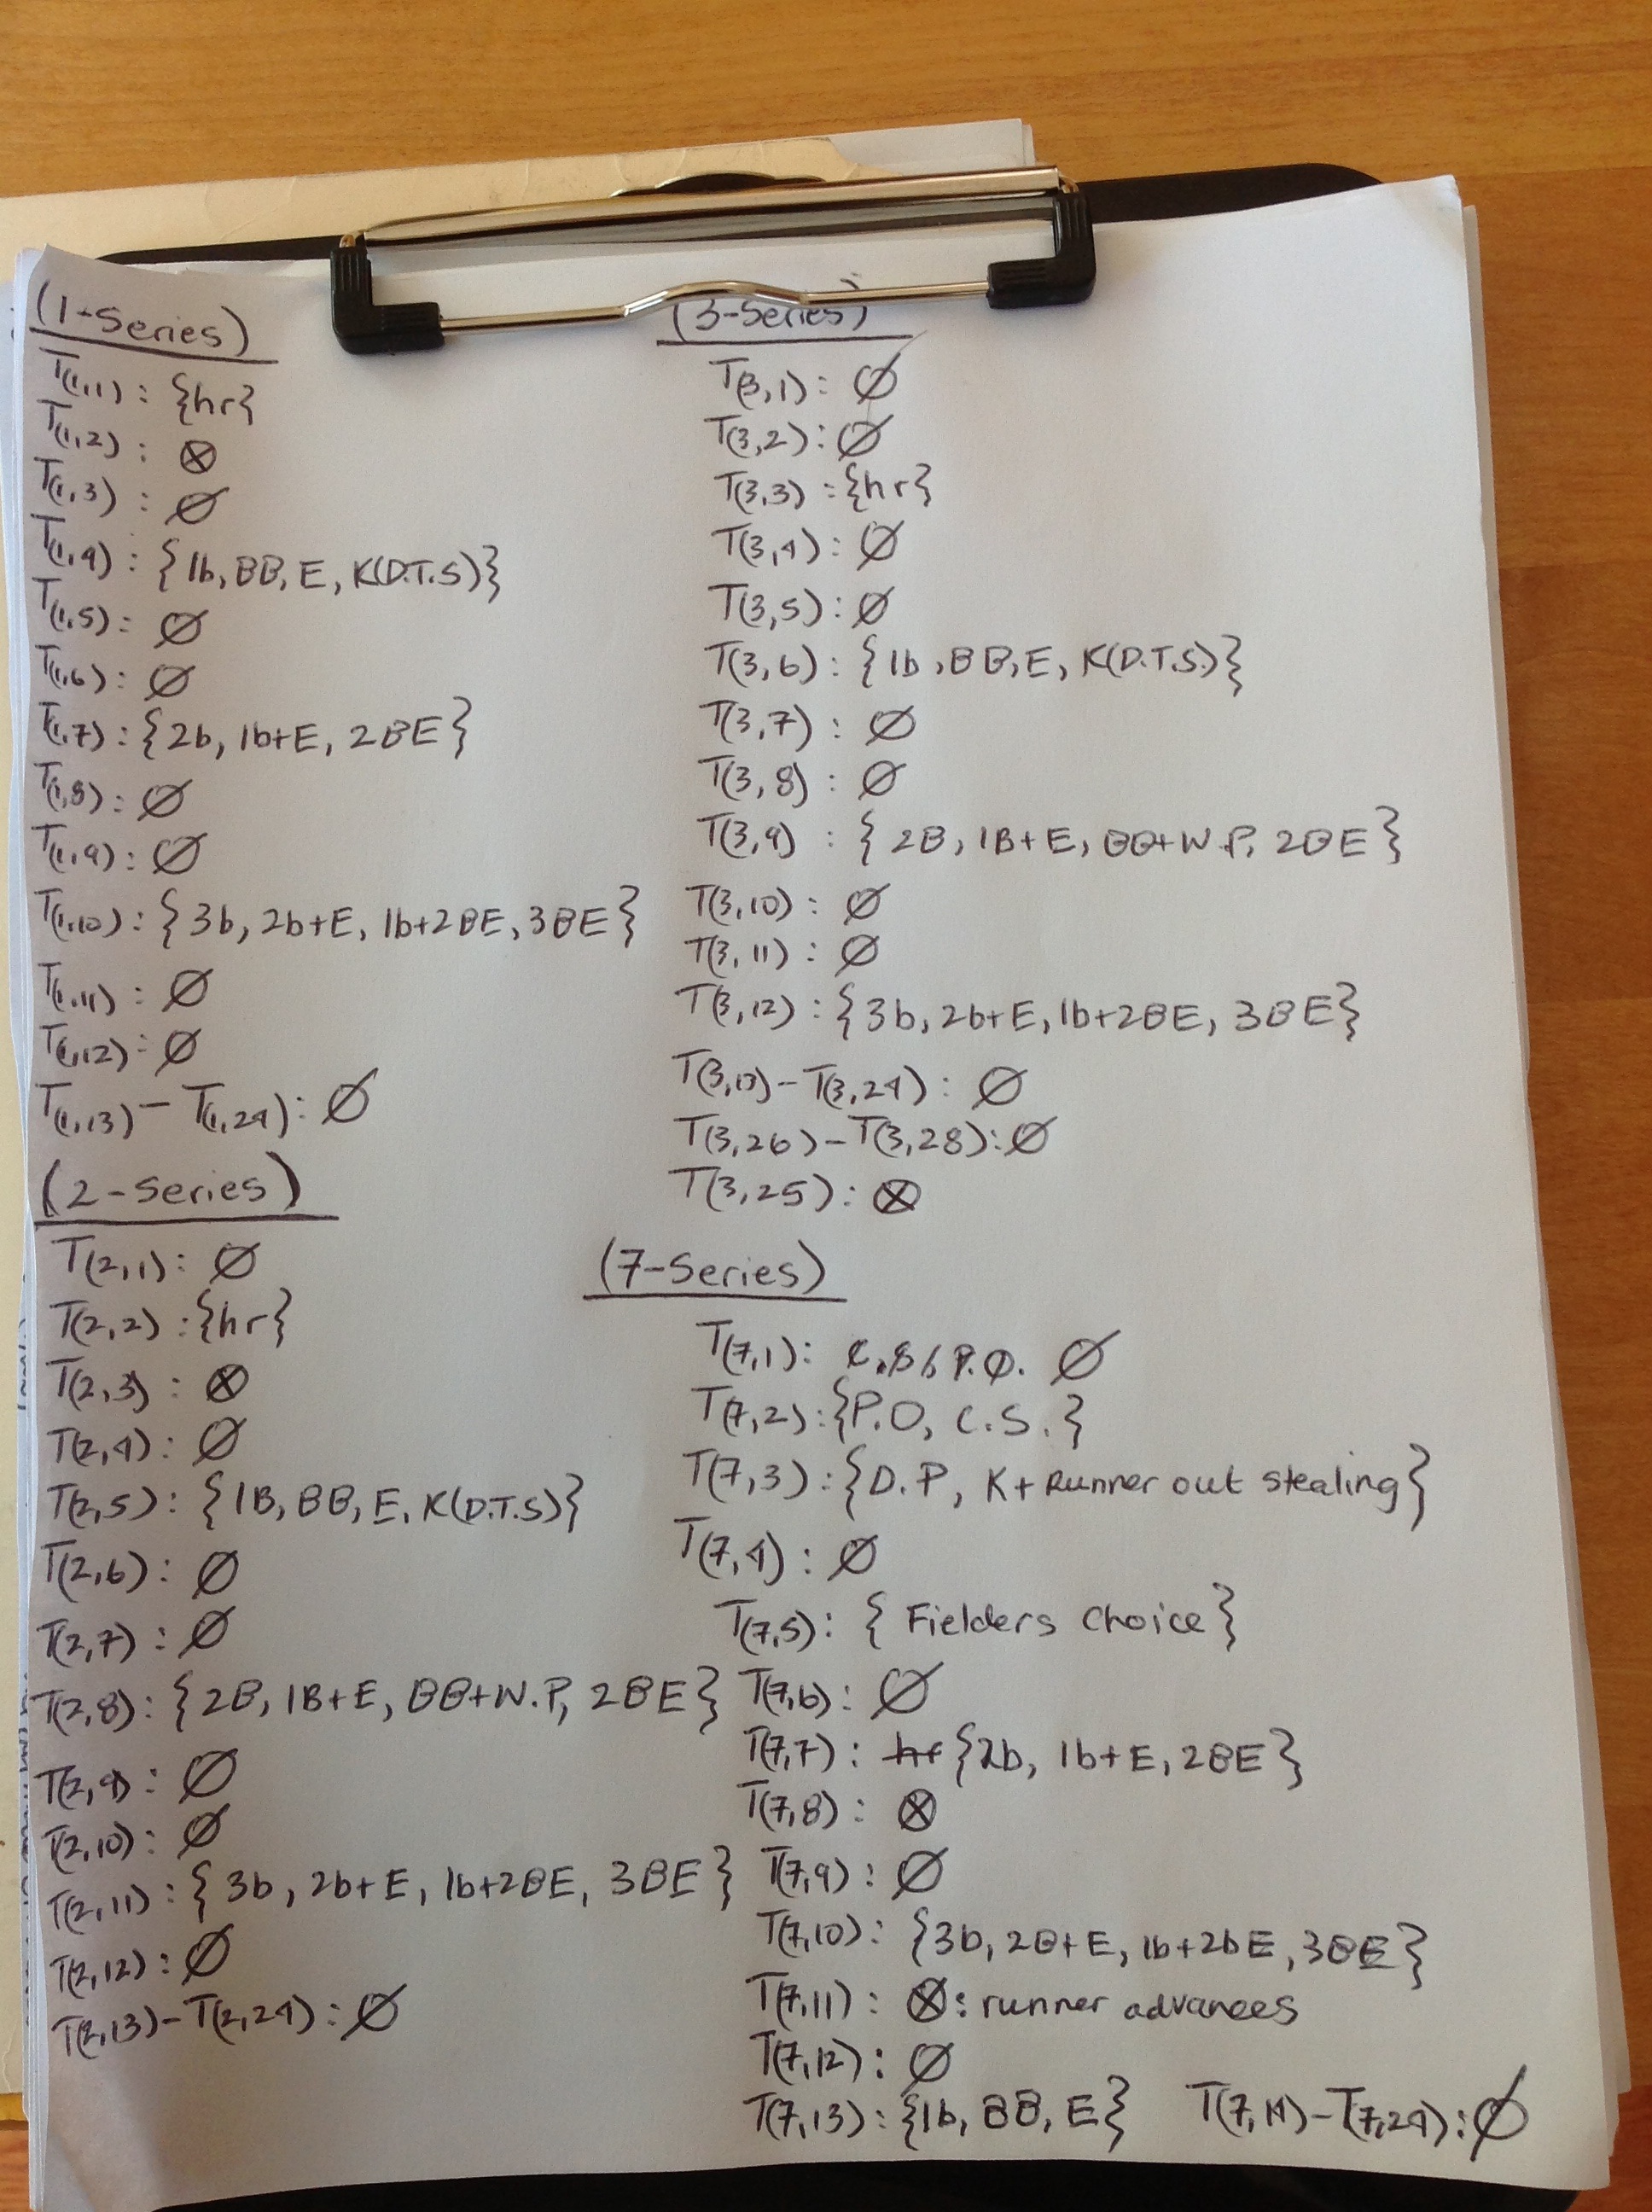 (1-Series)
T(1,1) : {hr}
T(1,2) : ⊗
T(1,3) : ∅
T(1,4) : {1b, BB, E, K(D.T.S)}
T(1,5) : ∅
T(1,6) : ∅
T(1,7) : {2b, 1b+E, 2BE}
T(1,8) : ∅
T(1,9) : ∅
T(1,10) : {3b, 2b+E, 1b+2BE, 3BE}
T(1,11) : ∅
T(1,12) : ∅
T(1,13) – T(1,24) : ∅
(2-Series)
T(2,1) : ∅
T(2,2) : {hr}
T(2,3) : ⊗
T(2,4) : ∅
T(2,5) : {1B, BB, E, K(D.T.S)}
T(2,6) : ∅
T(2,7) : ∅
T(2,8) : {2B, 1B+E, BB+W.P, 2BE}
T(2,9) : ∅
T(2,10) : ∅
T(2,11) : {3b, 2b+E, 1b+2BE, 3BE}
T(2,12) : ∅
T(2,13) – T(2,24) : ∅
(3-Series)
T(3,1) : ∅
T(3,2) : ∅
T(3,3) : {hr}
T(3,4) : ∅
T(3,5) : ∅
T(3,6) : {1b, BB, E, K(D.T.S.)}
T(3,7) : ∅
T(3,8) : ∅
T(3,9) : {2B, 1B+E, BB+W.P, 2BE}
T(3,10) : ∅
T(3,11) : ∅
T(3,12) : {3b, 2b+E, 1b+2BE, 3BE}
T(3,13) – T(3,24) : ∅
T(3,26) – T(3,28) : ∅
T(3,25) : ⊗
(7-Series)
T(7,1) : C.S, P.O. ∅
T(7,2) : {P.O, C.S.}
T(7,3) : {D.P, K+Runner out stealing}
T(7,4) : ∅
T(7,5) : {Fielders Choice}
T(7,6) : ∅
T(7,7) : hr {2b, 1b+E, 2BE}
T(7,8) : ⊗
T(7,9) : ∅
T(7,10) : {3b, 2B+E, 1b+2bE, 3BE}
T(7,11) : ⊗ : runner advances
T(7,12) : ∅
T(7,13) : {1b, BB, E} T(7,14) – T(7,24) : ∅